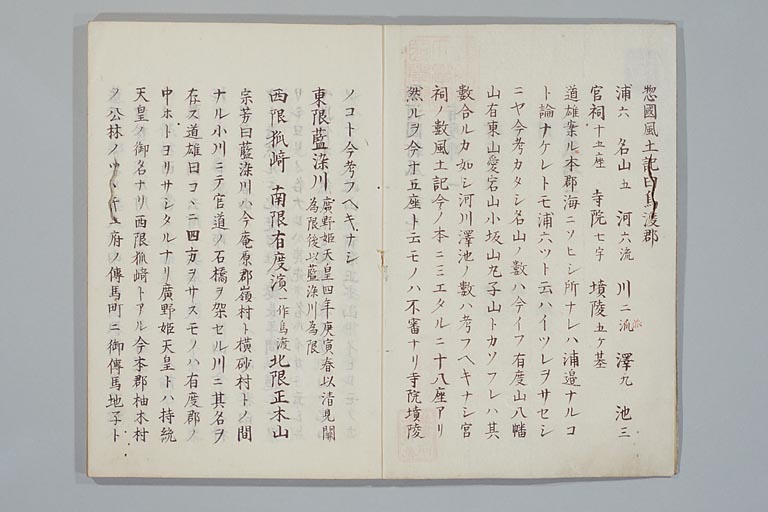 惣國風土記曰烏渡郡
浦六 名山五 河六流 川二流 澤九 池三
官祠十五座 寺院七宇 墳陵五ケ基
道雄案ルニ本郡海ニソヒシ所ナレハ浦邉ナルコ
ト論ナケレトモ浦六ツト云ハイツレヲサセシ
ニヤ今考カタシ名山ノ數ハ今イフ有度山八幡
山有東山愛宕山小坂山丸子山トカソフレハ其
數合ルカ如シ河川澤池ノ數ハ考フヘキナシ官
祠ノ數風土記今ノ本ニミエタルニ十八座アリ
然ルヲ今十五座ト云モノハ不審ナリ寺院墳陵
ノコト今考フヘキナシ
東限藍染川 廣野姫天皇四年庚寅春以清見關
為限後以藍染川為限
西限狐﨑 南限有度濱 一作烏渡 北限正木山
宗芳曰藍染川ハ今庵原郡嶺村ト横砂村トノ間
ナル小川ニテ官道ノ石橋ヲ架セル川ニ其名ヲ
存ス道雄曰コヽニ四方ヲサスモノハ有度郡ノ
中ホトヨリサシタルナリ廣野姫天皇トハ持統
天皇ノ御名ナリ西限狐﨑トアル今本郡柚木村
ノ公林ノ 府ノ傳馬町ニ御傳馬地子ト